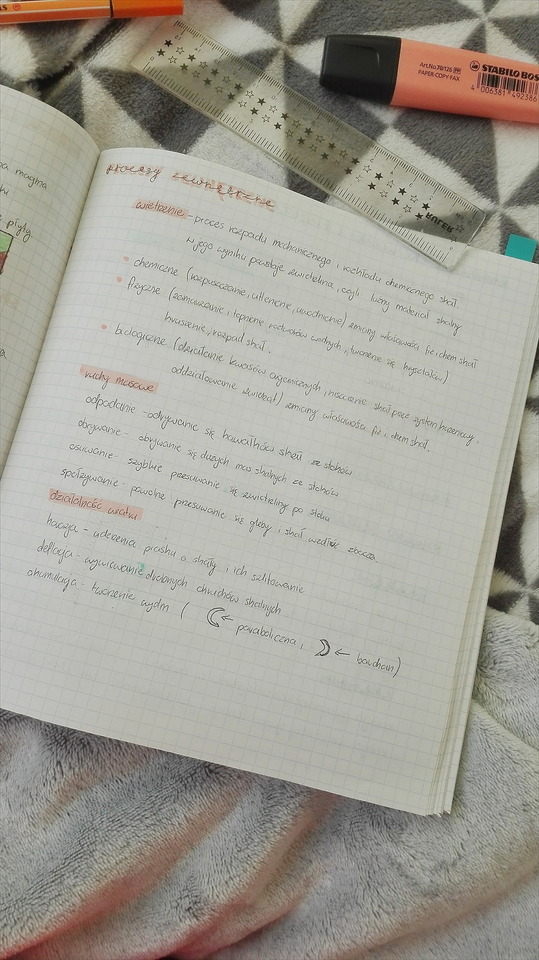 STABILO BOSS
Art.No.70/126
PAPER COPY FAX
4 006381 492386
RULER
magma
płyty
procesy zewnętrzne
wietrzenie - proces rozpadu mechanicznego i rozkładu chemicznego skał
w jego wyniku powstaje zwietrzelina, czyli luźny materiał skalny
chemiczne (rozpuszczanie, utlenienie, uwodnienie) zmiany właściwości fiz i chem skał
fizyczne (zamarzanie i topnienie roztworów wodnych, tworzenie się kryształów)
kruszenie, rozpad skał.
biologiczne (działanie kwasów organicznych, niszczenie skał przez system korzeniowy,
oddziaływanie zwierząt) zmiany właściwości fiz i chem skał.
ruchy masowe
odpadanie - odrywanie się kawałków skał ze stoków
obrywanie - obrywanie się dużych mas skalnych ze stoków
osuwanie - szybkie przesuwanie się zwietrzeliny po stoku
spełzywanie - powolne przesuwanie się gleby i skał wzdłuż zbocza
działalność wiatru
korazja - uderzenia piasku o skały i ich szlifowanie
deflacja - wywiewanie drobnych okruchów skalnych
akumulacja - tworzenie wydm ( ← paraboliczna, ← barchan)